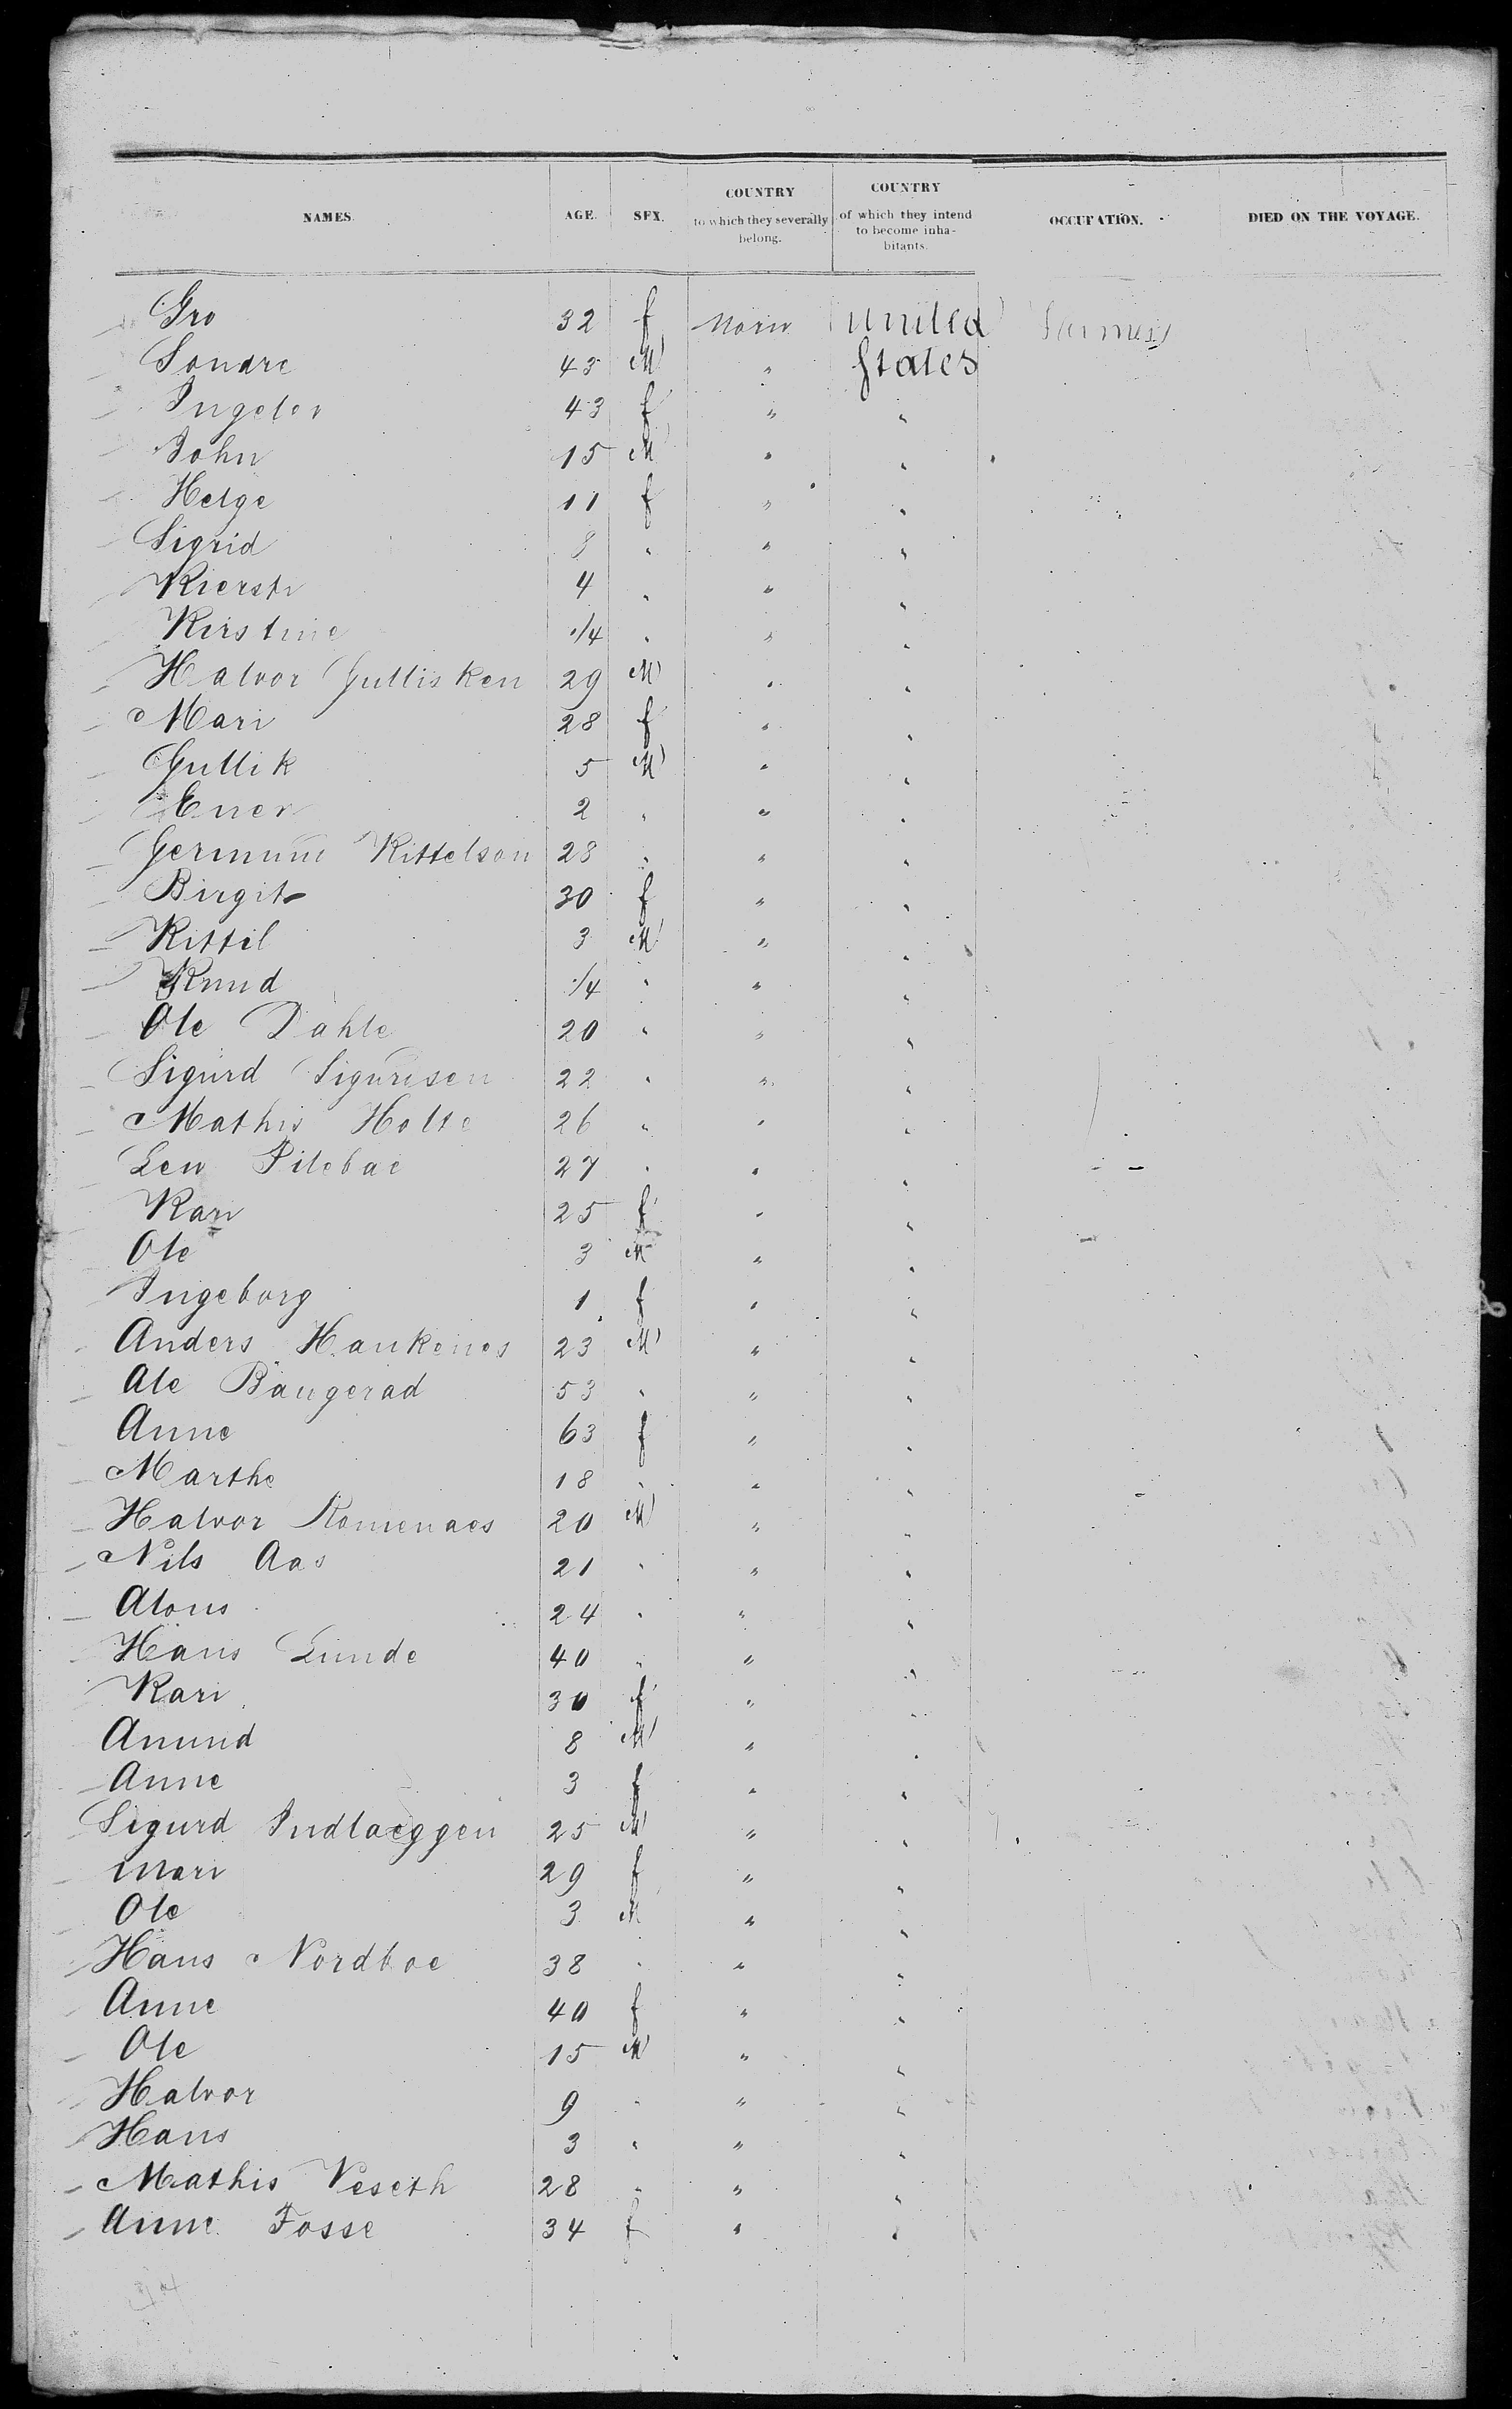 NAMES. AGE. SEX. COUNTRY to which they severally belong. COUNTRY of which they intend to become inhabitants. OCCUPATION. DIED ON THE VOYAGE.
Gro 32 f Norw United
Sondre 43 M " States
Ingelev 43 f " "
John 15 M " "
Helge 11 f " "
Sigrid 8 " " "
Kiersti 4 " " "
Kirstine 1/4 " " "
Halvor Gullisken 29 M " "
Mari 28 f " "
Gullik 5 M " "
Ener 2 " " "
Germund Kittelson 28 " " "
Birgit 30 f " "
Kittil 3 M " "
Knud 1/4 " " "
Ole Dahle 20 " " "
Sigurd Sigurdsen 22 " " "
Mathis Holte 26 " " "
Lew Pilebae 27 " " "
Kari 25 f " "
Ole 3 M " "
Ingeborg 1 f " "
Anders Haukenes 23 M " "
Ole Baugerad 53 " " "
Anne 63 f " "
Marthe 18 " " "
Halvor Romenaes 20 M " "
Nils Aas 21 " " "
Alous 24 " " "
Hans Lunde 40 " " "
Kari 30 f " "
Amund 8 M " "
Anne 3 f " "
Sigurd Indlaeggen 25 M " "
Mari 29 f " "
Ole 3 M " "
Hans Nordboe 38 " " "
Anne 40 f " "
Ole 15 M " "
Halvor 9 " " "
Hans 3 " " "
Mathis Veseth 28 " " "
Anne Fosse 34 f " "
44